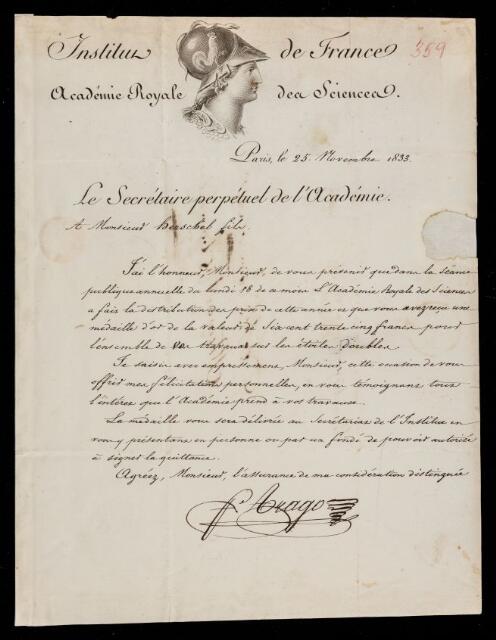 Institut de France
359
Académie Royale des Sciences.
Paris, le 25. Novembre 1833.
Le Secrétaire perpétuel de l'Académie.
A Monsieur Herschel fils.
J'ai l'honneur, Monsieur, de vous prévenir que dans la séance
publique annuelle du lundi 18 de ce mois L'Académie Royale des Sciences
a fait la distribution des prix de cette année et que vous avez reçu une
médaille d'or de la valeur de Six cent trente cinq francs pour
l'ensemble de vos travaux sur les étoiles Doubles.
Je saisis avec empressement, Monsieur, cette occasion de vous
offrir mes félicitations personnelles, en vous témoignant tout
l'intérêt que l'Académie prend à vos travaux.
La médaille vous sera délivrée au Secrétariat de l'Institut en
vous y présentant en personne ou par un fondé de pouvoir autorisé
à signer la quittance.
Agréez, Monsieur, l'assurance de ma considération distinguée
F. Arago